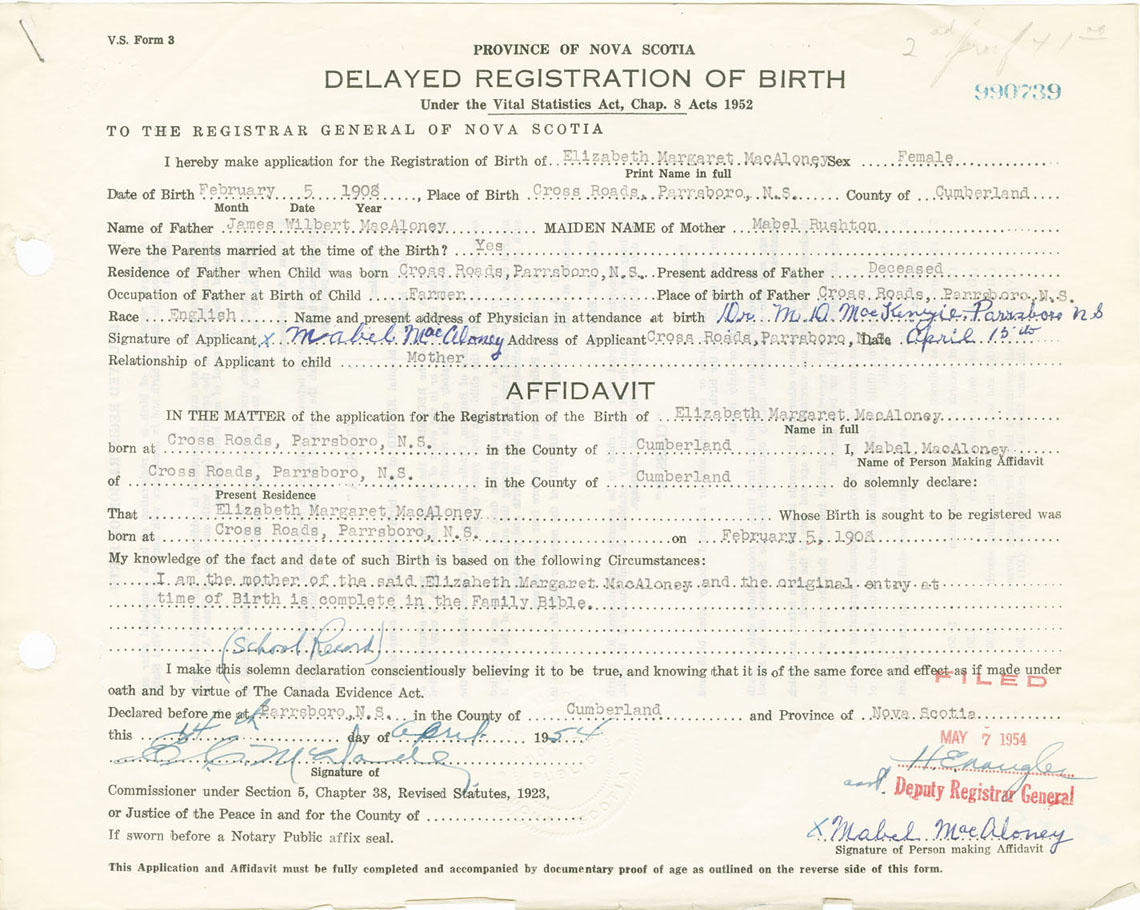 V.S. Form 3
2nd proof + 1.00
PROVINCE OF NOVA SCOTIA
DELAYED REGISTRATION OF BIRTH
990739
Under the Vital Statistics Act, Chap. 8 Acts 1952
TO THE REGISTRAR GENERAL OF NOVA SCOTIA
I hereby make application for the Registration of Birth of Elizabeth Margaret MacAloney Sex Female
Print Name in full
Date of Birth February 5 1908, Place of Birth Cross Roads, Parrsboro, N.S. County of Cumberland
Month Date Year
Name of Father James Wilbert MacAloney MAIDEN NAME of Mother Mabel Rushton
Were the Parents married at the time of the Birth? Yes
Residence of Father when Child was born Cross Roads, Parrsboro, N.S. Present address of Father Deceased
Occupation of Father at Birth of Child Farmer Place of birth of Father Cross Roads, Parrsboro, N.S.
Race English Name and present address of Physician in attendance at birth Dr. M. D. MacKenzie, Parrsboro N S
Signature of Applicant x Mabel MacAloney Address of Applicant Cross Roads, Parrsboro, N. Date April 15th
Relationship of Applicant to child Mother
AFFIDAVIT
IN THE MATTER of the application for the Registration of the Birth of Elizabeth Margaret MacAloney
Name in full
born at Cross Roads, Parrsboro, N.S. in the County of Cumberland I, Mabel MacAloney
Name of Person Making Affidavit
of Cross Roads, Parrsboro, N.S. in the County of Cumberland do solemnly declare:
Present Residence
That Elizabeth Margaret MacAloney Whose Birth is sought to be registered was
born at Cross Roads, Parrsboro, N.S. on February 5, 1908
My knowledge of the fact and date of such Birth is based on the following Circumstances:
I am the mother of the said Elizabeth Margaret MacAloney and the original entry at
time of Birth is complete in the Family Bible.
(School Record)
I make this solemn declaration conscientiously believing it to be true, and knowing that it is of the same force and effect as if made under
FILED
oath and by virtue of The Canada Evidence Act.
Declared before me at Parrsboro, N.S. in the County of Cumberland and Province of Nova Scotia
this day of April 1954
MAY 7 1954
Signature of
Deputy Registrar General
Commissioner under Section 5, Chapter 38, Revised Statutes, 1923,
or Justice of the Peace in and for the County of
x Mabel MacAloney
If sworn before a Notary Public affix seal.
Signature of Person making Affidavit
This Application and Affidavit must be fully completed and accompanied by documentary proof of age as outlined on the reverse side of this form.